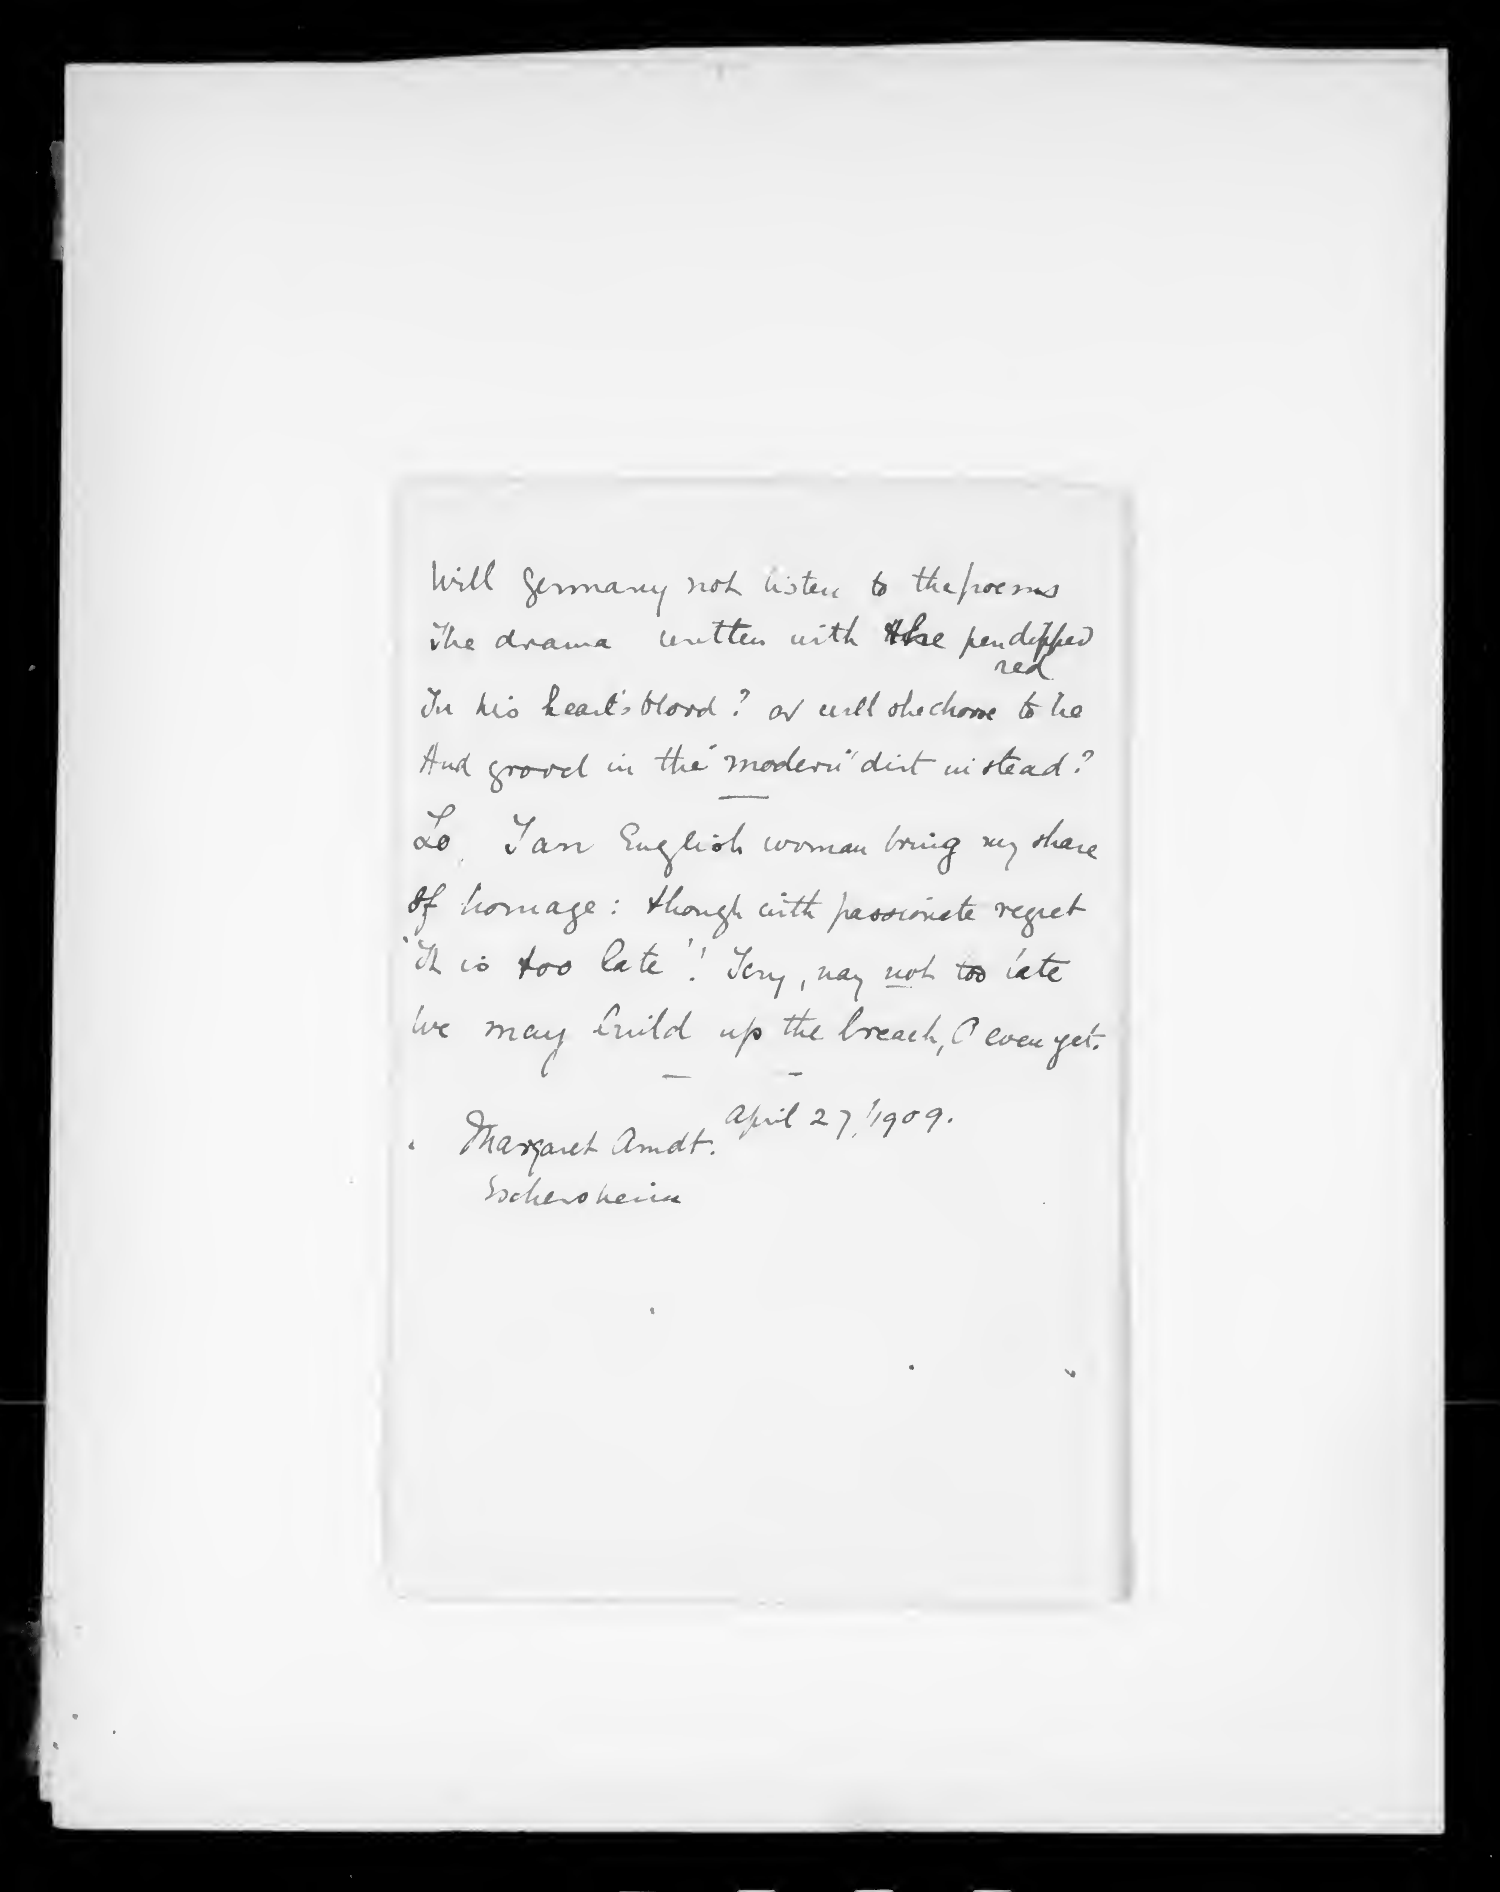 Will Germany not listen to the poems
The drama written with the pen dipped
red
In his heart's blood? or will she choose to lie
And grovel in the "modern" dirt instead?
Lo, I an English woman bring my share
Of homage: though with passionate regret
'It is too late'! I cry, nay not too late
We may build up the breach, O even yet.
April 27, 1909.
Margaret Arndt.
Eschersheim